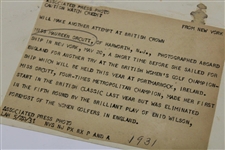 ASSOCIATED PRESS PHOTO
CAUTION WATCH CREDIT
FROM NEW YORK
WILL MAKE ANOTHER ATTEMPT AT BRITISH CROWN
MISS MAUREEN ORCUTT, OF HAWORTH, N.J., PHOTOGRAPHED ABOARD
SHIP IN NEW YORK, MAY 20, A SHORT TIME BEFORE SHE SAILED FOR
ENGLAND FOR ANOTHER TRY AT THE BRITISH WOMEN'S GOLF CHAMPION-
SHIP WHICH WILL BE HELD THIS YEAR AT PORTMARNOCK, IRELAND.
MISS ORCUTT, FOUR-TIMES METROPOLITAN CHAMPION, MADE HER FIRST
START IN THE BRITISH CLASSIC LAST YEAR BUT WAS ELIMINATED
IN THE FIFTH ROUND BY THE BRILLIANT PLAY OF ENID WILSON,
FOREMOST OF THE WOMEN GOLFERS IN ENGLAND.
ASSOCIATED PRESS PHOTO
5/20/31
NVG NJ PX RX P AND A
1931